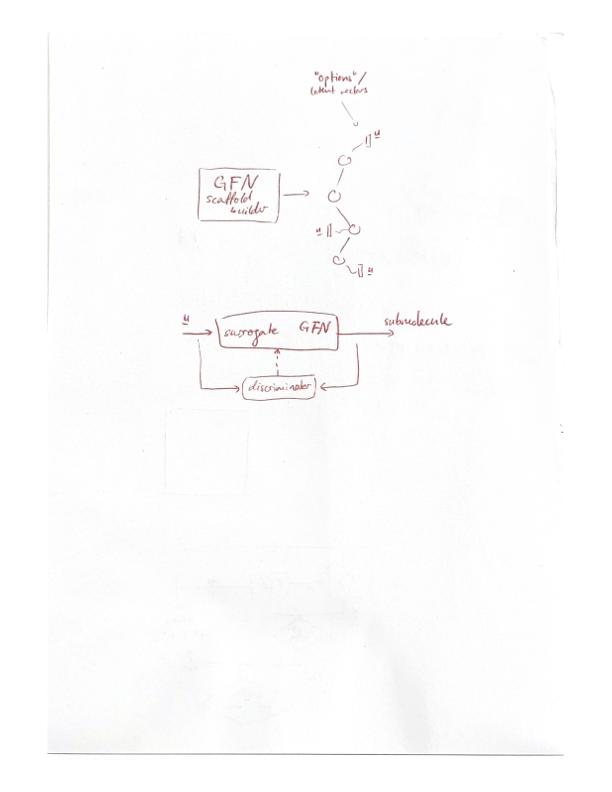 "options"/
latent vectors
u
GFN
scaffold
builder
u
u
u
surrogate GFN
submolecule
discriminator